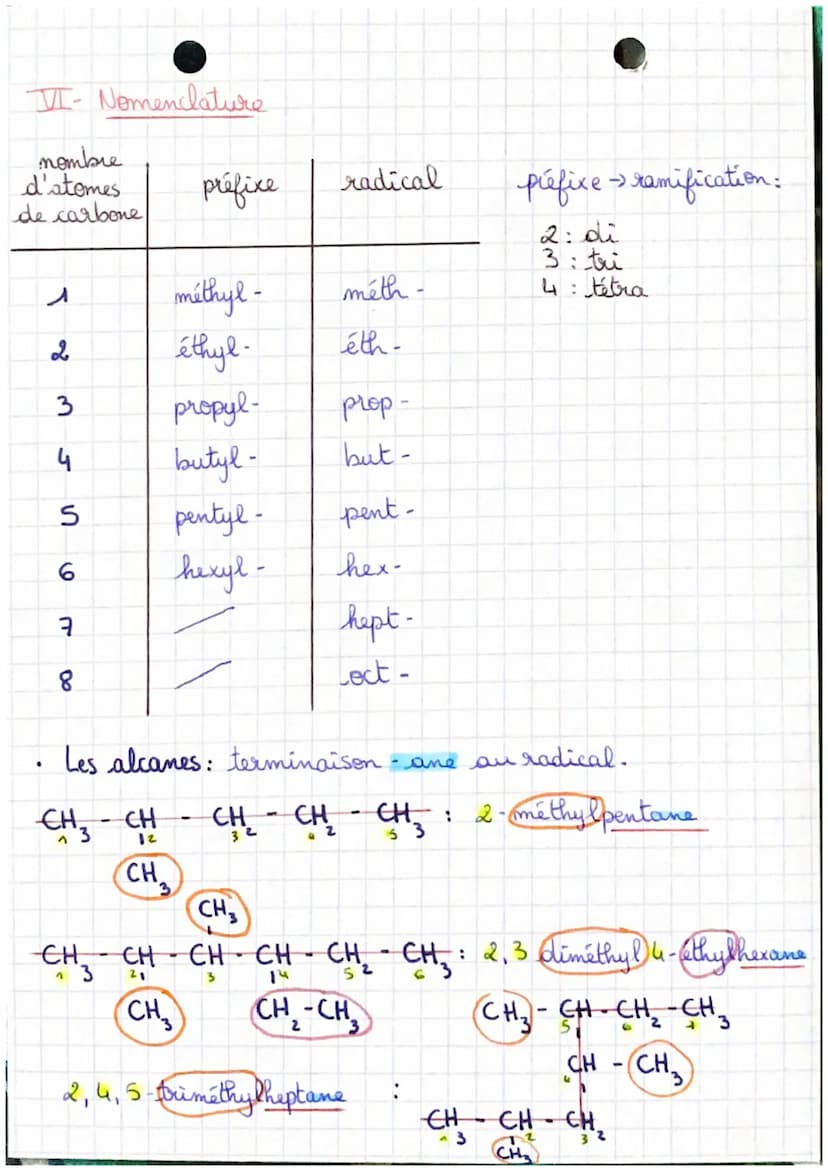 VI- Nomenclature
nombre d'atomes de carbone | préfixe | radical
1 | méthyl- | méth-
2 | éthyl- | éth-
3 | propyl- | prop-
4 | butyl- | but-
5 | pentyl- | pent-
6 | hexyl- | hex-
7 | / | hept-
8 | / | oct-
préfixe → ramification :
2 : di
3 : tri
4 : tétra
• Les alcanes : terminaison -ane au radical.
CH3 - CH - CH2 - CH2 - CH3 : 2-méthylpentane
1 2 3 4 5
CH3
CH3
CH3 - CH - CH - CH - CH2 - CH3 : 2,3 diméthyl 4-éthylhexane
1 2 3 4 5 6
CH3 CH2-CH3
CH3 - CH - CH2 - CH3
5 6 7
CH - CH3
4
2,4,5-triméthylheptane :
CH3 - CH - CH2
1 2 3
CH3